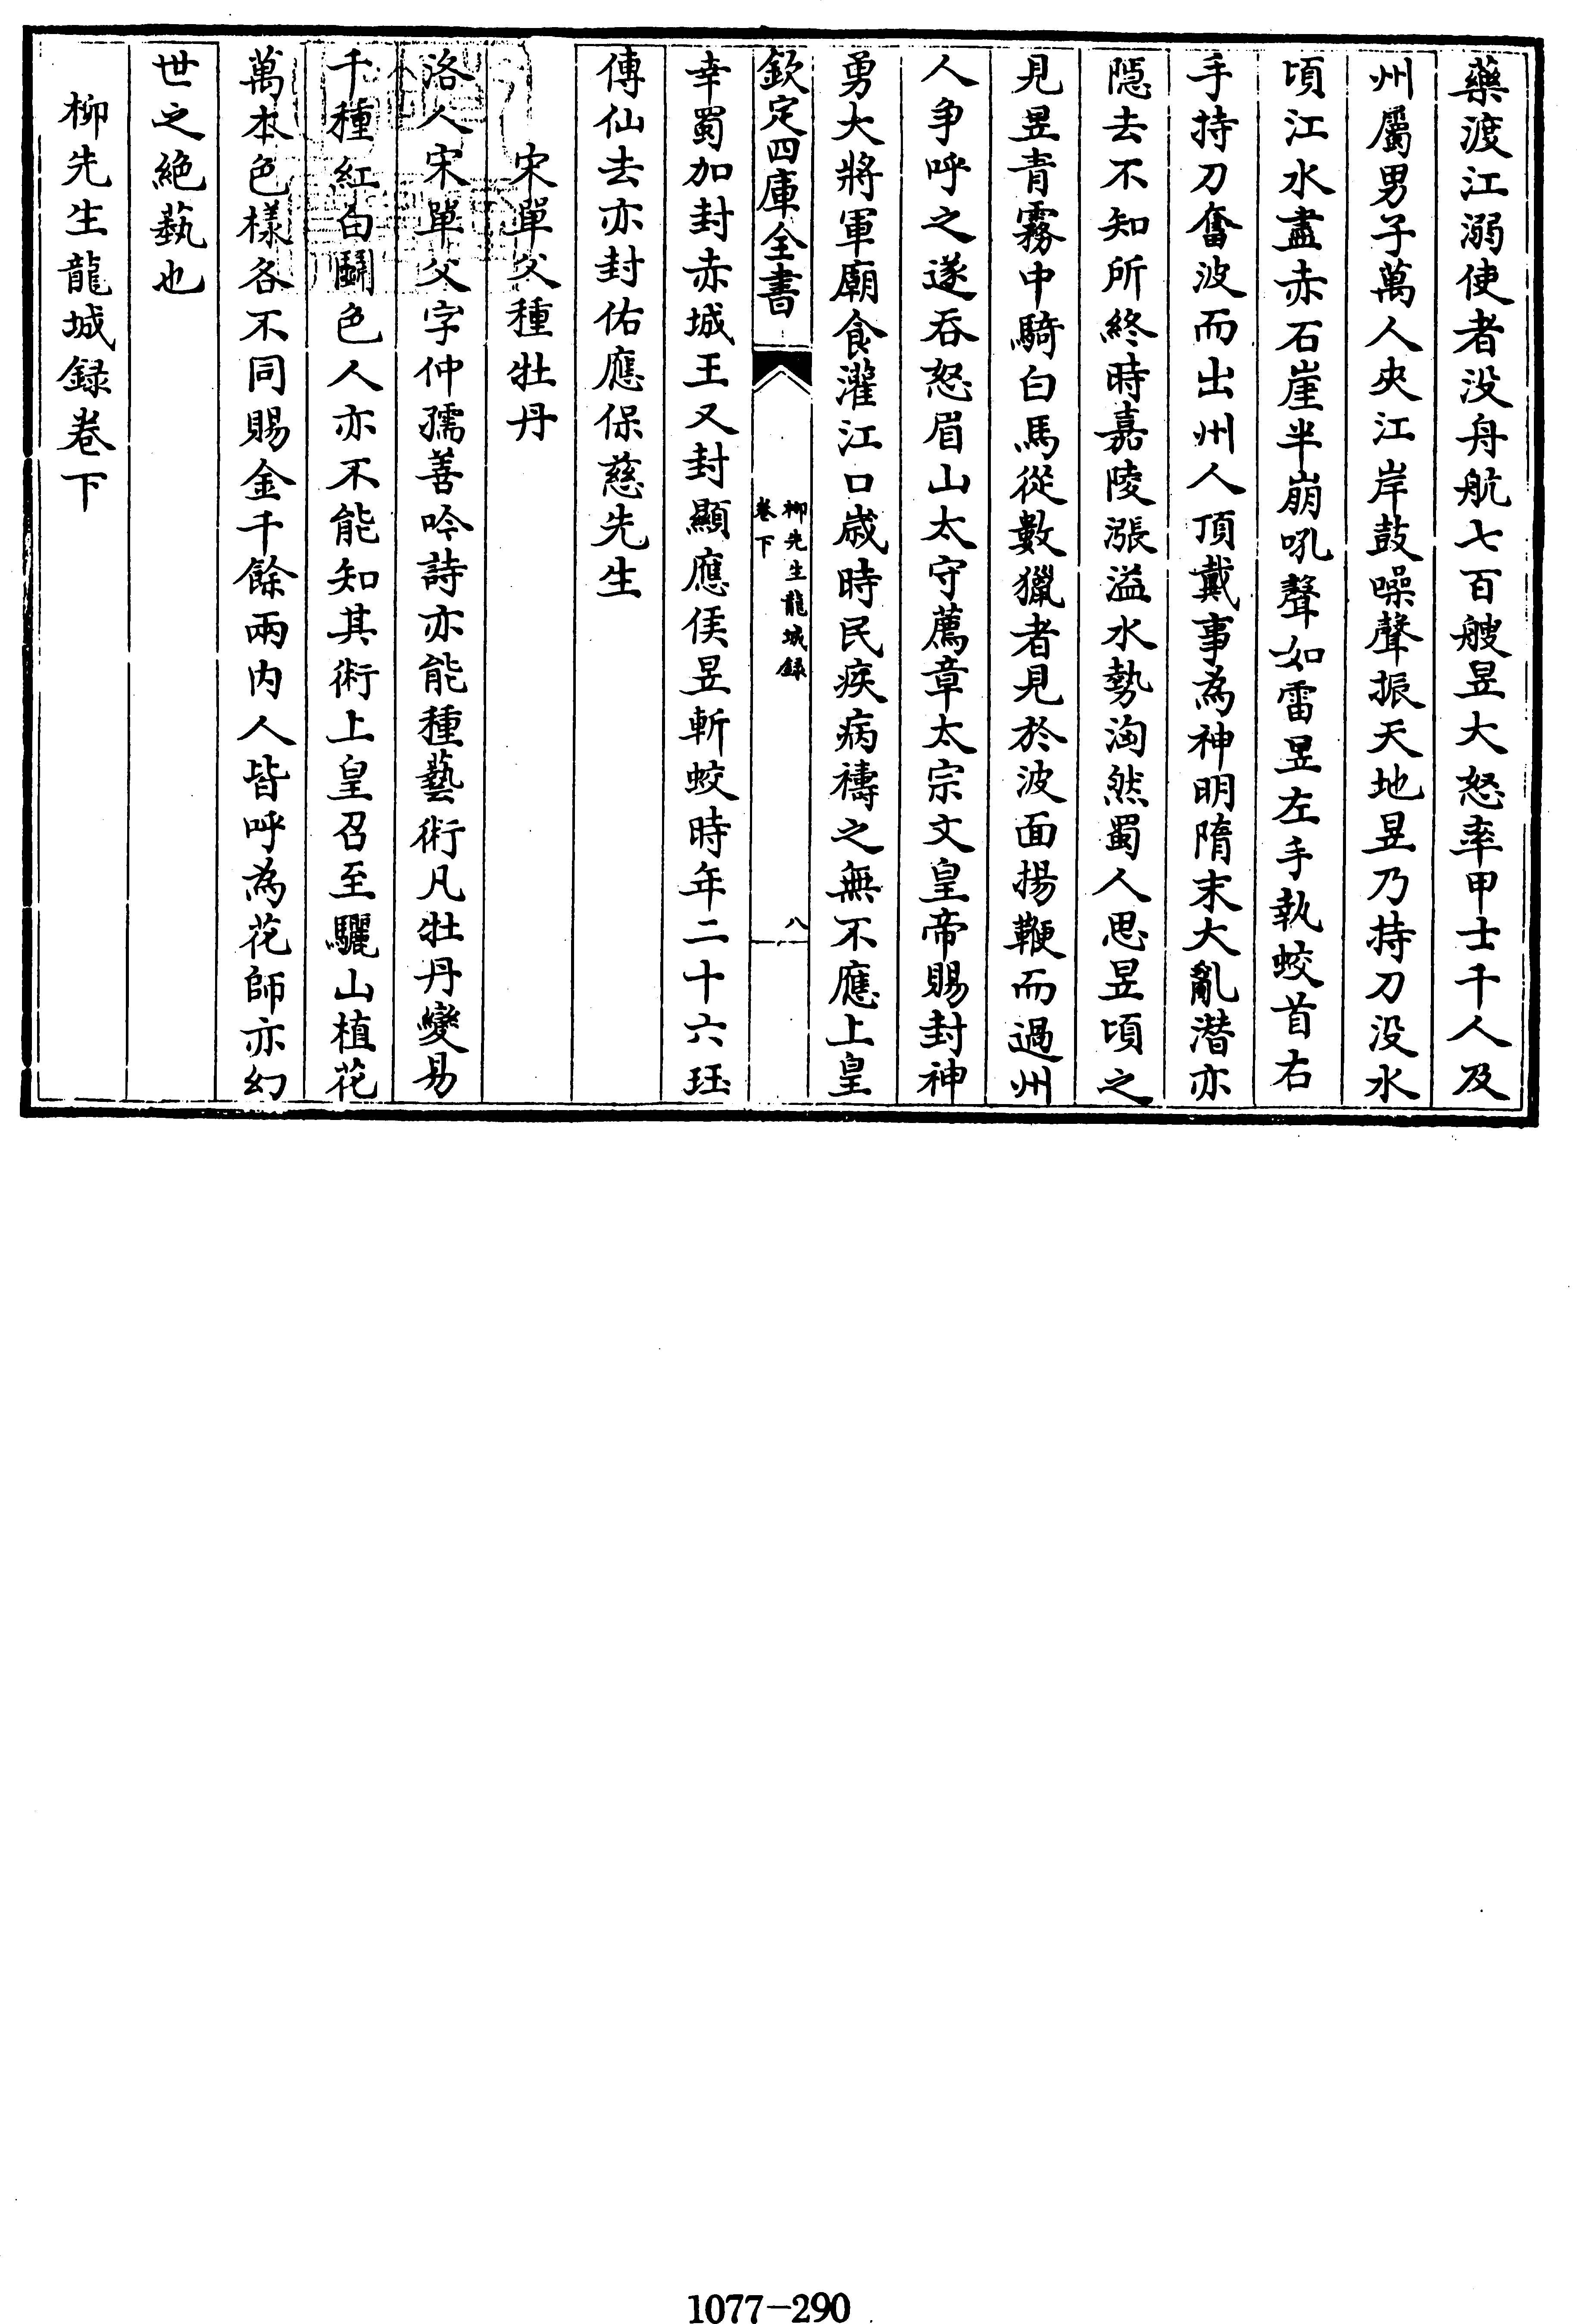 藥渡江溺使者没舟航七百艘昱大怒率甲士千人及
州屬男子萬人夾江岸鼓噪聲振天地昱乃持刀没水
頃江水盡赤石崖半崩吼聲如雷昱左手執蛟首右
手持刀奮波而出州人頂戴事為神明隋末大亂潛亦
隱去不知所終時嘉陵漲溢水勢洶然蜀人思昱頃之
見昱青霧中騎白馬從數獵者見於波面揚鞭而過州
人爭呼之遂吞怒眉山太守薦章太宗文皇帝賜封神
勇大將軍廟食灌江口歳時民疾病禱之無不應上皇
欽定四庫全書
柳先生龍城録
卷下
八
幸蜀加封赤城王又封顯應侯昱斬蛟時年二十六珏
傳仙去亦封佑應保慈先生
宋單父種牡丹
洛人宋單父字仲孺善吟詩亦能種藝術凡牡丹變易
千種紅白鬭色人亦不能知其術上皇召至驪山植花
萬本色樣各不同賜金千餘兩内人皆呼為花師亦幻
世之絶藝也
柳先生龍城録卷下
1077-290